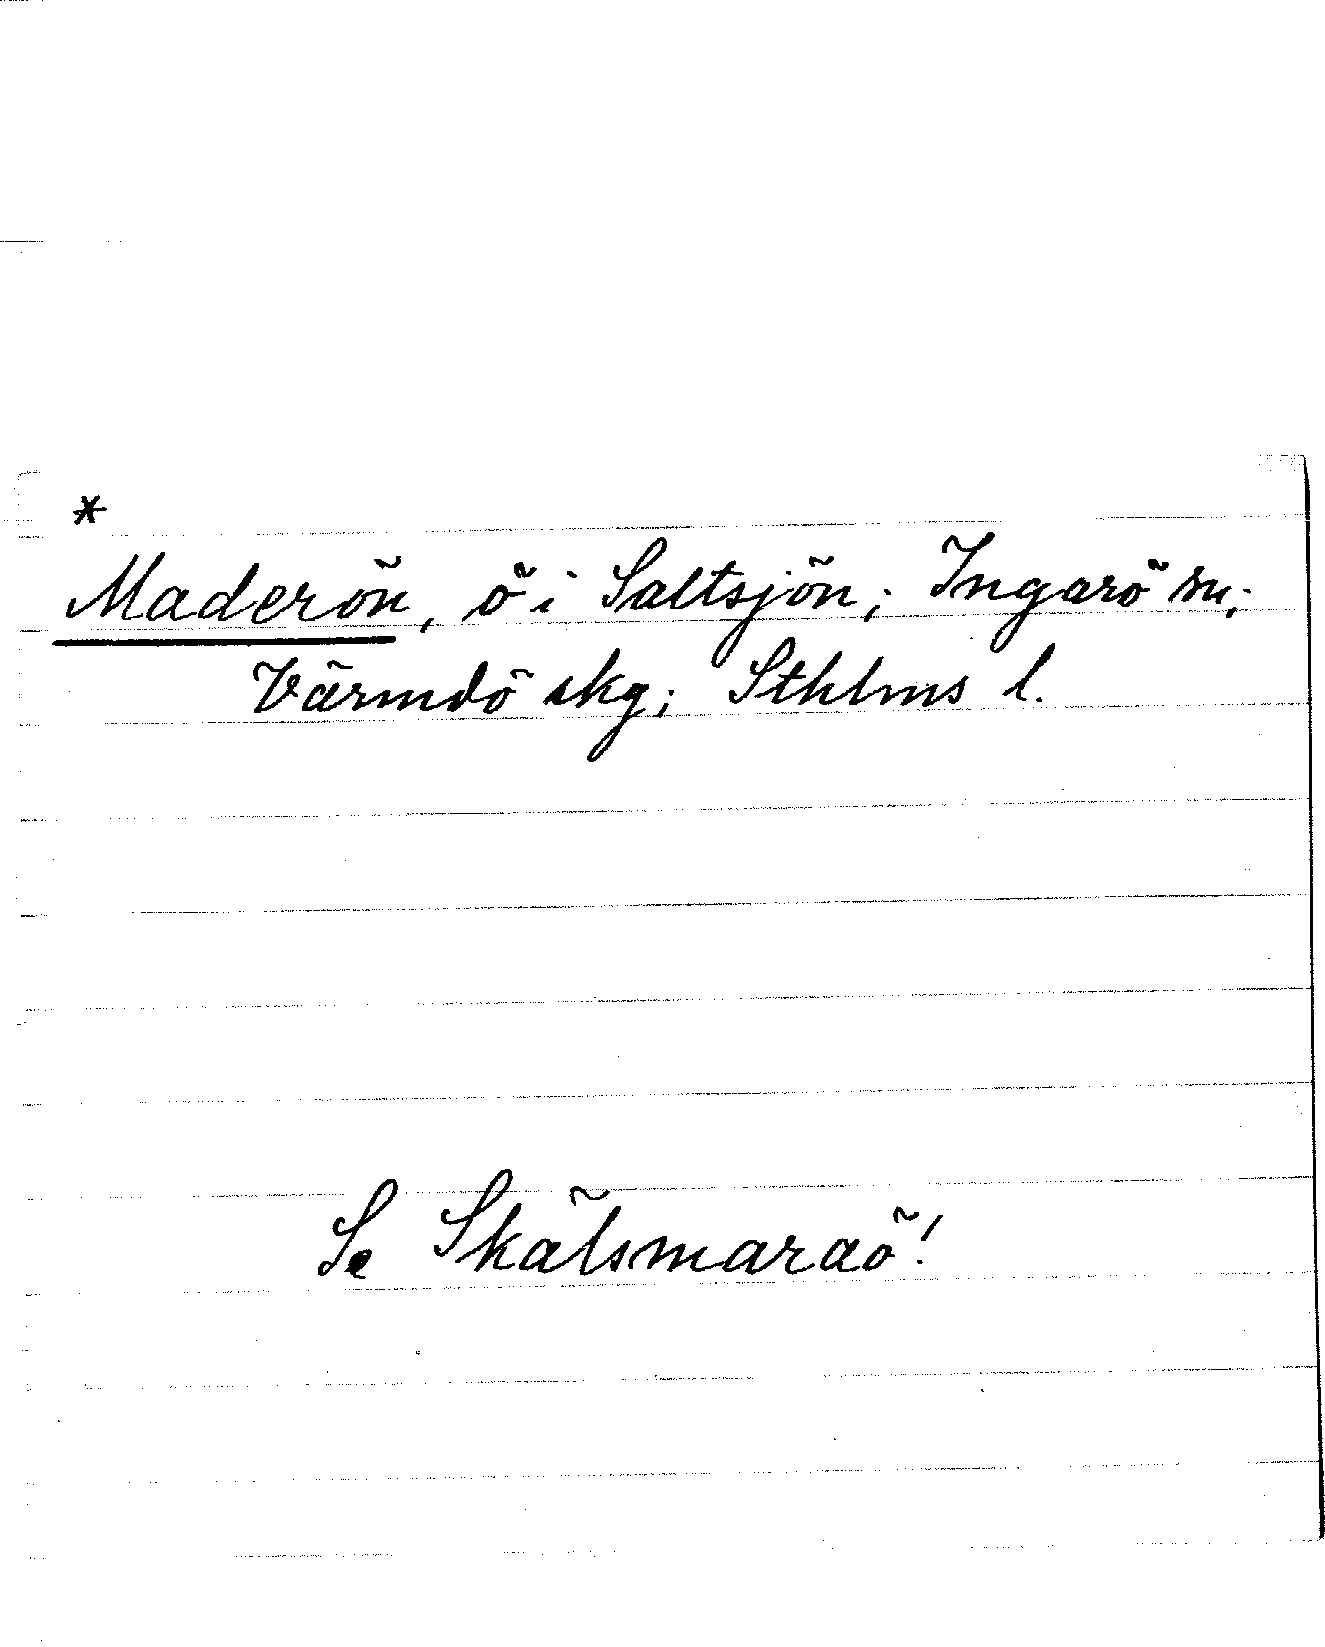 *
Maderön, ö i Saltsjön; Ingarö sn;
Värmdö skg; Sthlms l.
Se Skälsmaraö!